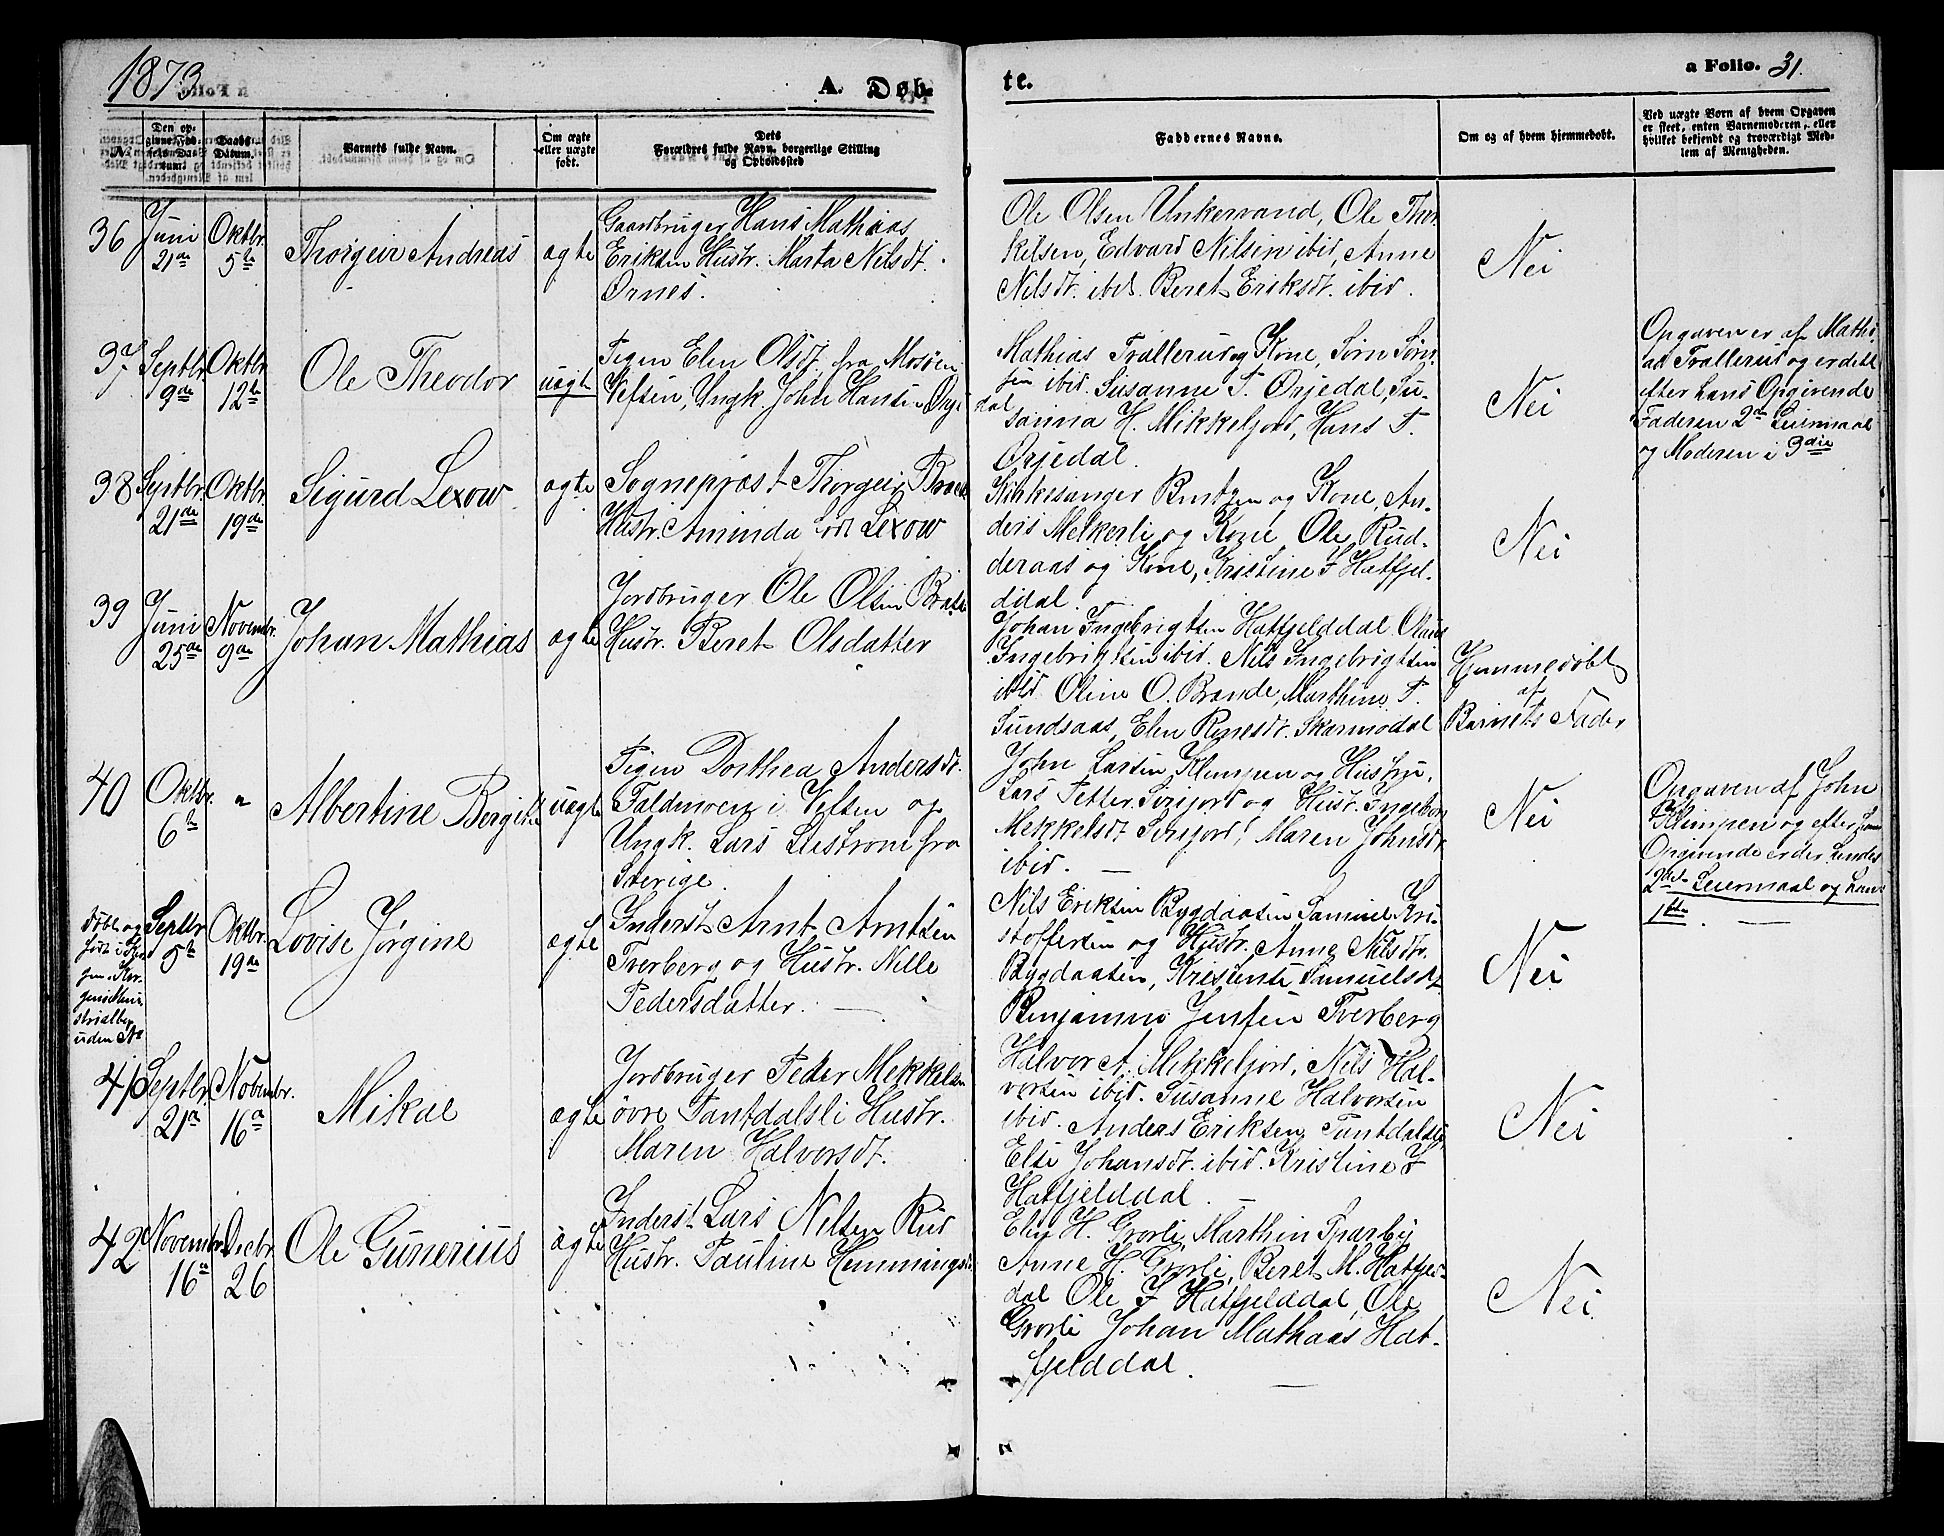 1873
A. Døb-
te.
a Folio. 31.
No
Den op-
givne Fød-
sels Da-
tum
Daabs
Datum.
Barnets fulde Navn.
Om ægte
eller uægte
født.
Dets
Forældres fulde Navn, borgerlige Stilling
og Opholdssted
Faddernes Navne.
Om og af hvem hjemmedøbt.
Ved uægte Børn af hvem Opgaven
er skeet, enten Barnemoderen, eller
hvilket bekjendt og troværdigt Med-
lem af Menigheden.
36
Juni
21de
Oktbr
5te
Thorgeir Andreas
ægte
Gaardbruger Hans Mathias
Eriksen Hustr. Marta Nilsdt.
Ørnes.
Ole Olsen Unkervand, Ole Thor-
kilsen, Edvard Nilsen ibid, Anne
Nilsdt. ibid. Beret Eriksdt. ibid.
Nei
37
Septbr
9de
Oktbr
12te
Ole Theodor
uægt
Pigen Elen Olsdt. fra Mosøen
Vefsen, Ungk. John Hansen Ørje
dal
Mathias Trallerud og Kone, Sørn Sørn-
sen ibid. Susanne T. Ørjedal, Su-
sanna H. Mikkeljord, Hans T.
Ørjedal.
Nei
Opgaven er af Mathi,
as Trallerud og er det
efter hans Opgivende
Faderen 2de Leiermaal
og Moderen i 3die
38
Septbr
21de
Oktbr
19de
Sigurd Lexow
ægte
Sognepræst Thorgeir
Hustr. Aminda født Lexow
Kirkesanger Bentzen og Kone, An-
ders Melkerli og Kone, Ole Rud-
deraas og Kone, Kristine J Hatfjel-
ddal.
Nei
39
Juni
25de
Novembr.
9de
Johan Mathias
ægte
Jordbruger Ole Olsen
Hustr. Beret Olsdatter
Johan Ingebrigtsen Hatfjelddal Olaus
Ingebrigtsen ibid. Nils Ingebrigtsen
ibid Oline O. Brande, Marthine T.
Sundsaas, Elen Rinesdt. Skarmodal
Hjemmedøbt
af
Barnets Fader
40
Oktbr.
6te
"
Albertine Bergitte
uægte
Pigen Dorthea Andersdt.
Faldmoen i Vefsen og
Ungk. Lars Listrom fra
Sverige.
John Larsen Klimpen og Hustru.
Lars Petter Sirijord og Hustr. Ingebor
Mekkelsdt Sirijord, Maren Johnsdt
ibid.
Nei
Opgaven af John
Klimpen og efter hans
Opgivende er det hendes
2det Leiermaal og hans
1ste
døbt og
født i
uden No
Septbr
5te
Oktbr.
19de
Lovise Jørgine
ægte
Inderst Arnt Arntsen
Tverberg og Hustr. Nille
Pedersdatter.
Nils Eriksen Bygdaasen Samuel Kri-
stoffersen og Hustr. Anne Nilsdt.
Bygdaasen, Kristense Samuelsdt
Benjamine Jensen Tverberg
Nei
41
Septbr
21de
Novembr.
16de
Mikal
ægte
Jordbruger Peder Mekkelsen
øvre Fantdalsli Hustr.
Maren Halvorsdt.
Halvor A. Mikkeljord, Nils Hal-
vorsen ibid. Susanne Halvorsen
ibid. Anders Eriksen Fantdalsli,
Else Johansdt. ibid. Kristine J
Hatfjelddal.
Nei
42
Novembr
16de
Decbr
26
Ole Gunerius
ægte
Inderst Lars Nilsen Rud
Hustr. Pauline Hemmingsd
H. Grorli, Marthin Sparby
Anne H. Grorli, Beret M. Hatfjel-
dal Ole J Hatfjelddal, Ole
Grorli Johan Mathias Hat-
fjelddal.
Nei